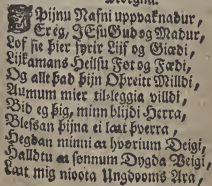 Þijnu Nafni uppvaknadur,
Er eg, JEsu Gud og Madur,
Lof sie þier fyrir Lijf og Giædi,
Lijkamans Heilsu Føt og Fædi,
Og allt það þijn Obreitt Milldi,
Aumum mier til-leggia villdi,
Bid eg þig, minn blijdi Herra,
Blessan þijna ei laat þverra,
Hegdan minni æ hvørium Deigi,
Halldtu æ sønnum Dygda Veigi,
Laat mig nioota Ungdooms Ara,